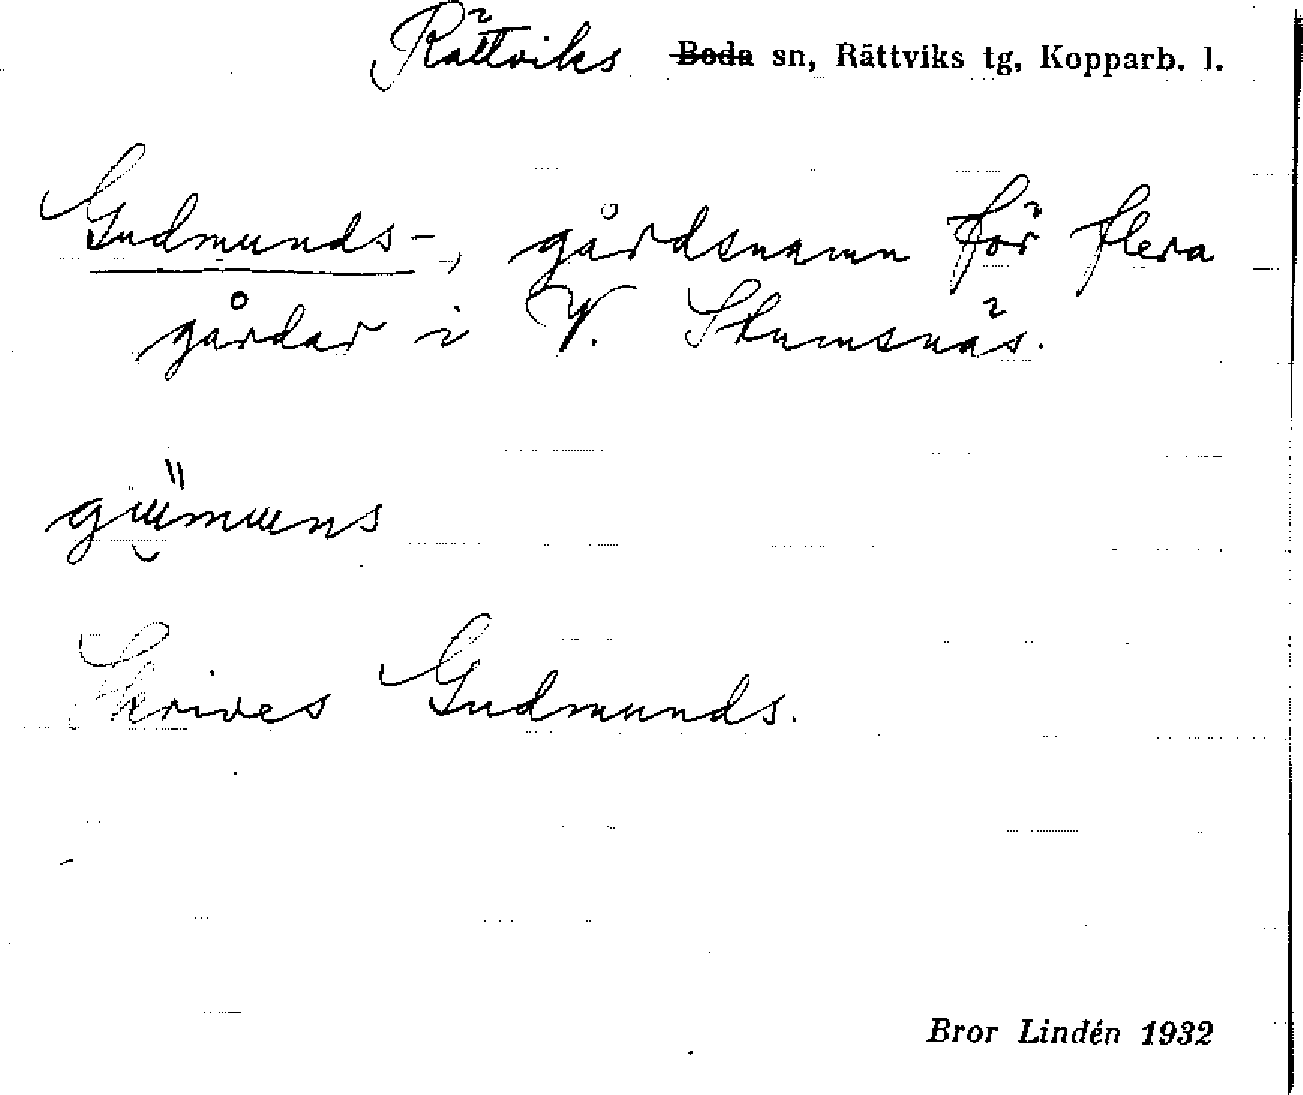 Rättviks Boda sn, Rättviks tg, Kopparb. l.
Gudmunds-, gårdsnamn för flera
gårdar i V. Stumsnäs.
Skrives Gudmunds.
Bror Lindén 1932